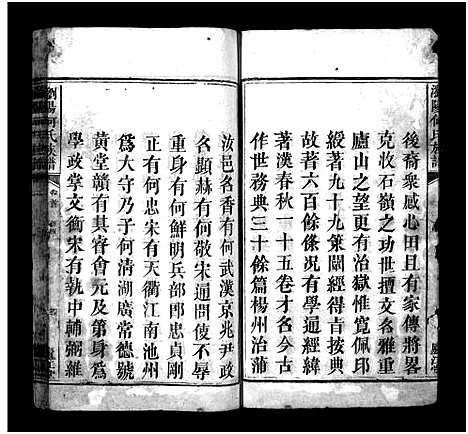 瀏陽何氏族譜
後裔衆感心田且有家傳將畧
克收石嶺之功世擅文名雅重
廬山之望更有治獄惟寬佩邱
綬著九十九策闡經得吉按典
故著六百餘條況有學通經緯
著漢春秋一十五卷才名今古
作世務典三十餘篇楊州治蒲
汝邑名香有何武漢京兆尹政
名顯赫有何敬宋通問使不辱
重身有何鮮明兵部郎忠貞剛
正有何忠宋有天衢江南池州
爲大守乃子何清湖廣常德號
黃堂贛有其睿會元及第身爲
學政掌文衡宋有執中輔弼雜
瀏陽何氏族譜
廬江堂